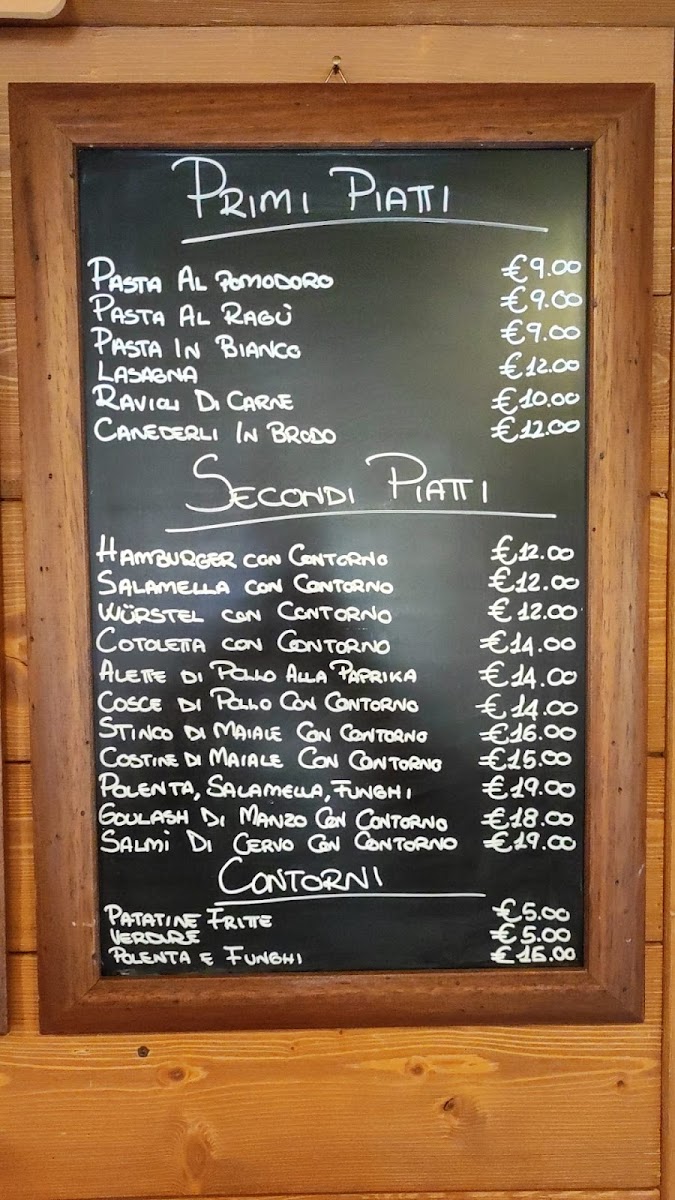 PRIMI PIATTI
PASTA AL POMODORO €9.00
PASTA AL RAGÙ €9.00
PASTA IN BIANCO €9.00
LASAGNA €12.00
RAVIOLI DI CARNE €10.00
CANEDERLI IN BRODO €12.00
SECONDI PIATTI
HAMBURGER CON CONTORNO €12.00
SALAMELLA CON CONTORNO €12.00
WÜRSTEL CON CONTORNO €12.00
COTOLETTA CON CONTORNO €14.00
ALETTE DI POLLO ALLA PAPRIKA €14.00
COSCE DI POLLO CON CONTORNO €14.00
STINCO DI MAIALE CON CONTORNO €16.00
COSTINE DI MAIALE CON CONTORNO €15.00
POLENTA, SALAMELLA, FUNGHI €19.00
GOULASH DI MANZO CON CONTORNO €18.00
SALMÌ DI CERVO CON CONTORNO €19.00
CONTORNI
PATATINE FRITTE €5.00
VERDURE €5.00
POLENTA E FUNGHI €16.00